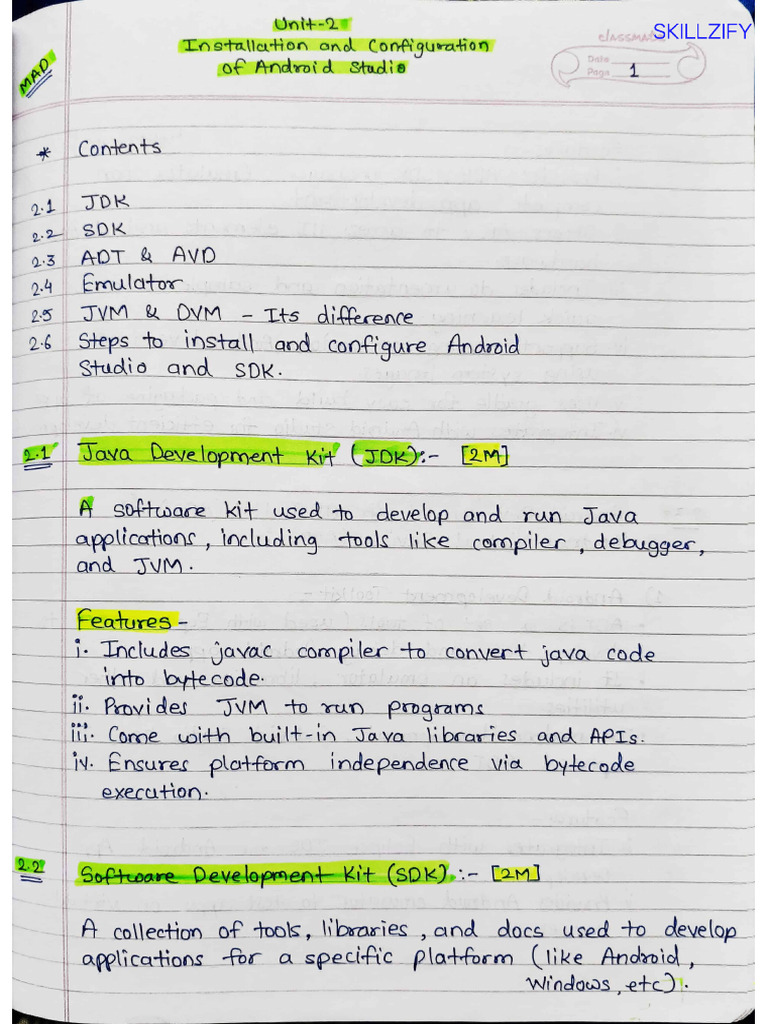 Unit-2
SKILLZIFY
classmate
Installation and Configuration
of Android Studio
Date
Page 1
MAD
* Contents
2.1 JDK
2.2 SDK
2.3 ADT & AVD
2.4 Emulator
2.5 JVM & DVM - Its difference
2.6 Steps to install and configure Android
Studio and SDK.
2.1 Java Development Kit (JDK):- [2M]
A software kit used to develop and run Java
applications, including tools like compiler, debugger,
and JVM.
Features -
i. Includes javac compiler to convert java code
into bytecode.
ii. Provides JVM to run programs
iii. Come with built-in Java libraries and APIs.
iv. Ensures platform independence via bytecode
execution.
2.2 Software Development Kit (SDK):- [2M]
A collection of tools, libraries, and docs used to develop
applications for a specific platform (like Android,
Windows, etc).